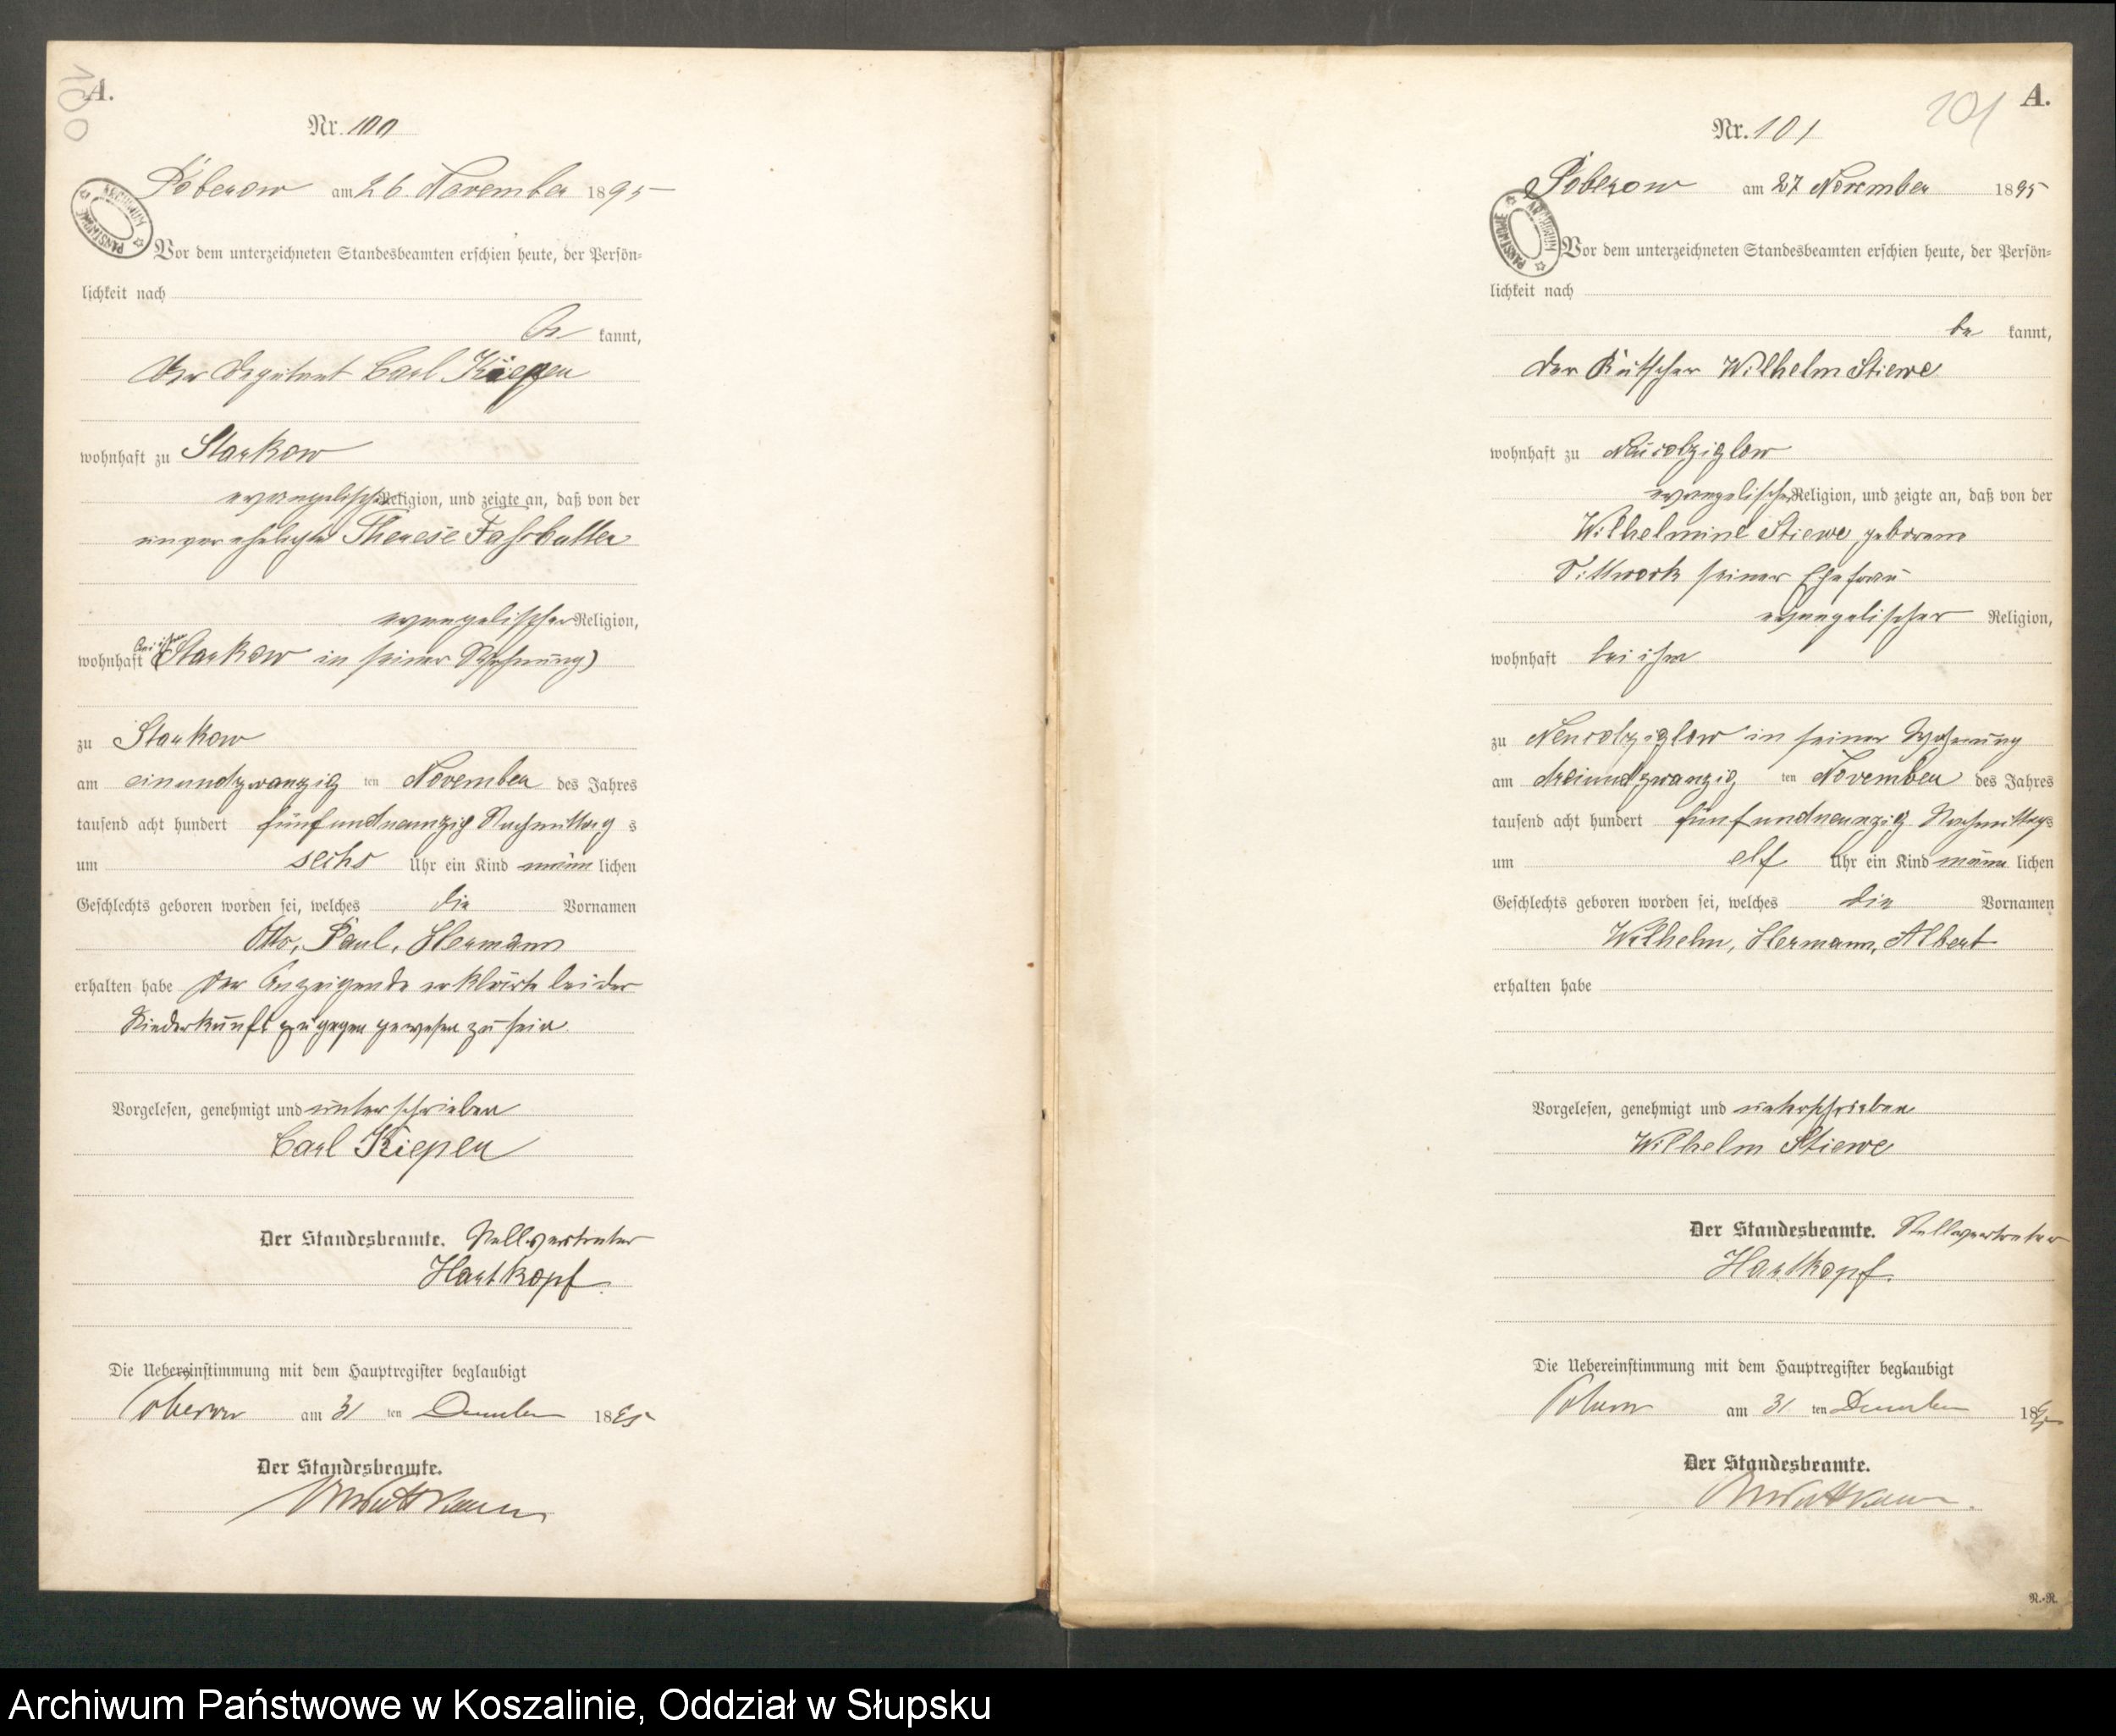 A.
100
Nr. 100
Poberow am 26. November 1895
ARCHIWUM PAŃSTWOWE
Vor dem unterzeichneten Standesbeamten erschien heute, der Persön-
lichkeit nach
be kannt,
der Deputant Carl Kieper
wohnhaft zu Starkow
evangelischer Religion, und zeigte an, daß von der
unverehelichte Therese Fahrbutter
evangelischer Religion,
wohnhaft bei ihm (Starkow in seiner Wohnung)
zu Starkow
am einundzwanzig ten November des Jahres
tausend acht hundert fünfundneunzig Nachmittag s
um sechs Uhr ein Kind männ lichen
Geschlechts geboren worden sei, welches die Vornamen
Otto, Paul, Hermann
erhalten habe Der Anzeigende erklärte bei der
Niederkunft zugegen gewesen zu sein.
Vorgelesen, genehmigt und unterschrieben
Carl Kieper
Der Standesbeamte. Stellvertreter
Hartkopf.
Die Uebereinstimmung mit dem Hauptregister beglaubigt
Poberow am 31 ten Dezember 1895
Der Standesbeamte.
A.
101
Nr. 101
Poberow am 27 November 1895
ARCHIWUM PAŃSTWOWE
Vor dem unterzeichneten Standesbeamten erschien heute, der Persön-
lichkeit nach
be kannt,
der Kutscher Wilhelm Stiewe
wohnhaft zu Neucolziglow
evangelischer Religion, und zeigte an, daß von der
Wilhelmine Stiewe geborene
Dittwork seiner Ehefrau
evangelischer Religion,
wohnhaft bei ihm
zu Neucolziglow in seiner Wohnung
am dreiundzwanzig ten November des Jahres
tausend acht hundert fünfundneunzig Nachmittags
um elf Uhr ein Kind männ lichen
Geschlechts geboren worden sei, welches die Vornamen
Wilhelm, Hermann, Albert
erhalten habe
Vorgelesen, genehmigt und unterschrieben
Wilhelm Stiewe
Der Standesbeamte. Stellvertreter
Hartkopf.
Die Uebereinstimmung mit dem Hauptregister beglaubigt
Poberow am 31 ten Dezember 1895
Der Standesbeamte.
N.-R.
Archiwum Państwowe w Koszalinie, Oddział w Słupsku